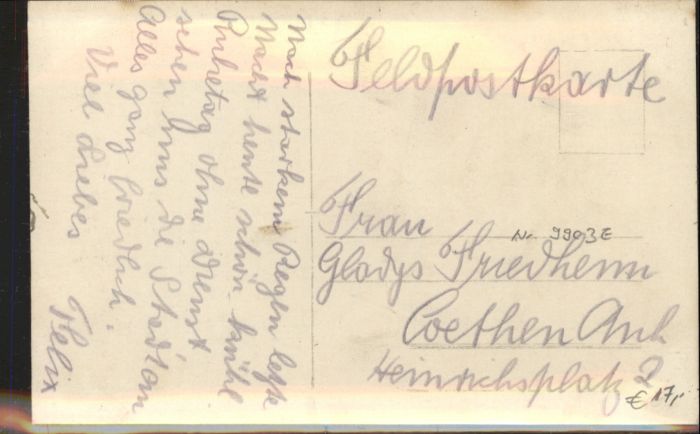 Nach starkem Regen letzte
Nacht heute schön kühl
Ruhetag ohne Dienst
sehen uns die Stadt an
Alles ganz friedlich.
Viel Liebes
Felix
Feldpostkarte
Frau
Nr. 9903E
Gladys Friedheim
Coethen Anh
Heinrichsplatz 2
€ 17,-